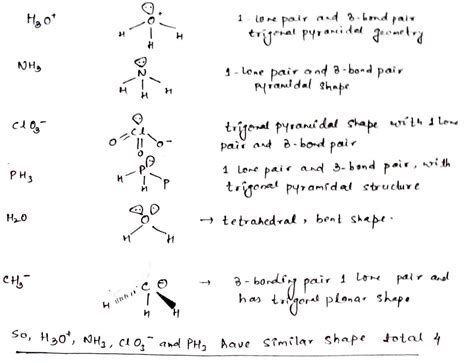 H₃O⁺ O⁺ H H H 1-lone pair and 3-bond pair
trigonal pyramidal geometry
NH₃ N H H H 1-lone pair and 3-bond pair
pyramidal shape
ClO₃⁻ Cl O O O⁻ trigonal pyramidal shape with 1 lone
pair and 3-bond pair
PH₃ P H H P 1 lone pair and 3-bond pair, with
trigonal pyramidal structure
H₂O O H H → tetrahedral, bent shape.
CH₃⁻ C ⊖ H H H → 3-bonding pair 1 lone pair and
has trigonal planar shape
So, H₃O⁺, NH₃, ClO₃⁻ and PH₃ have similar shape total 4